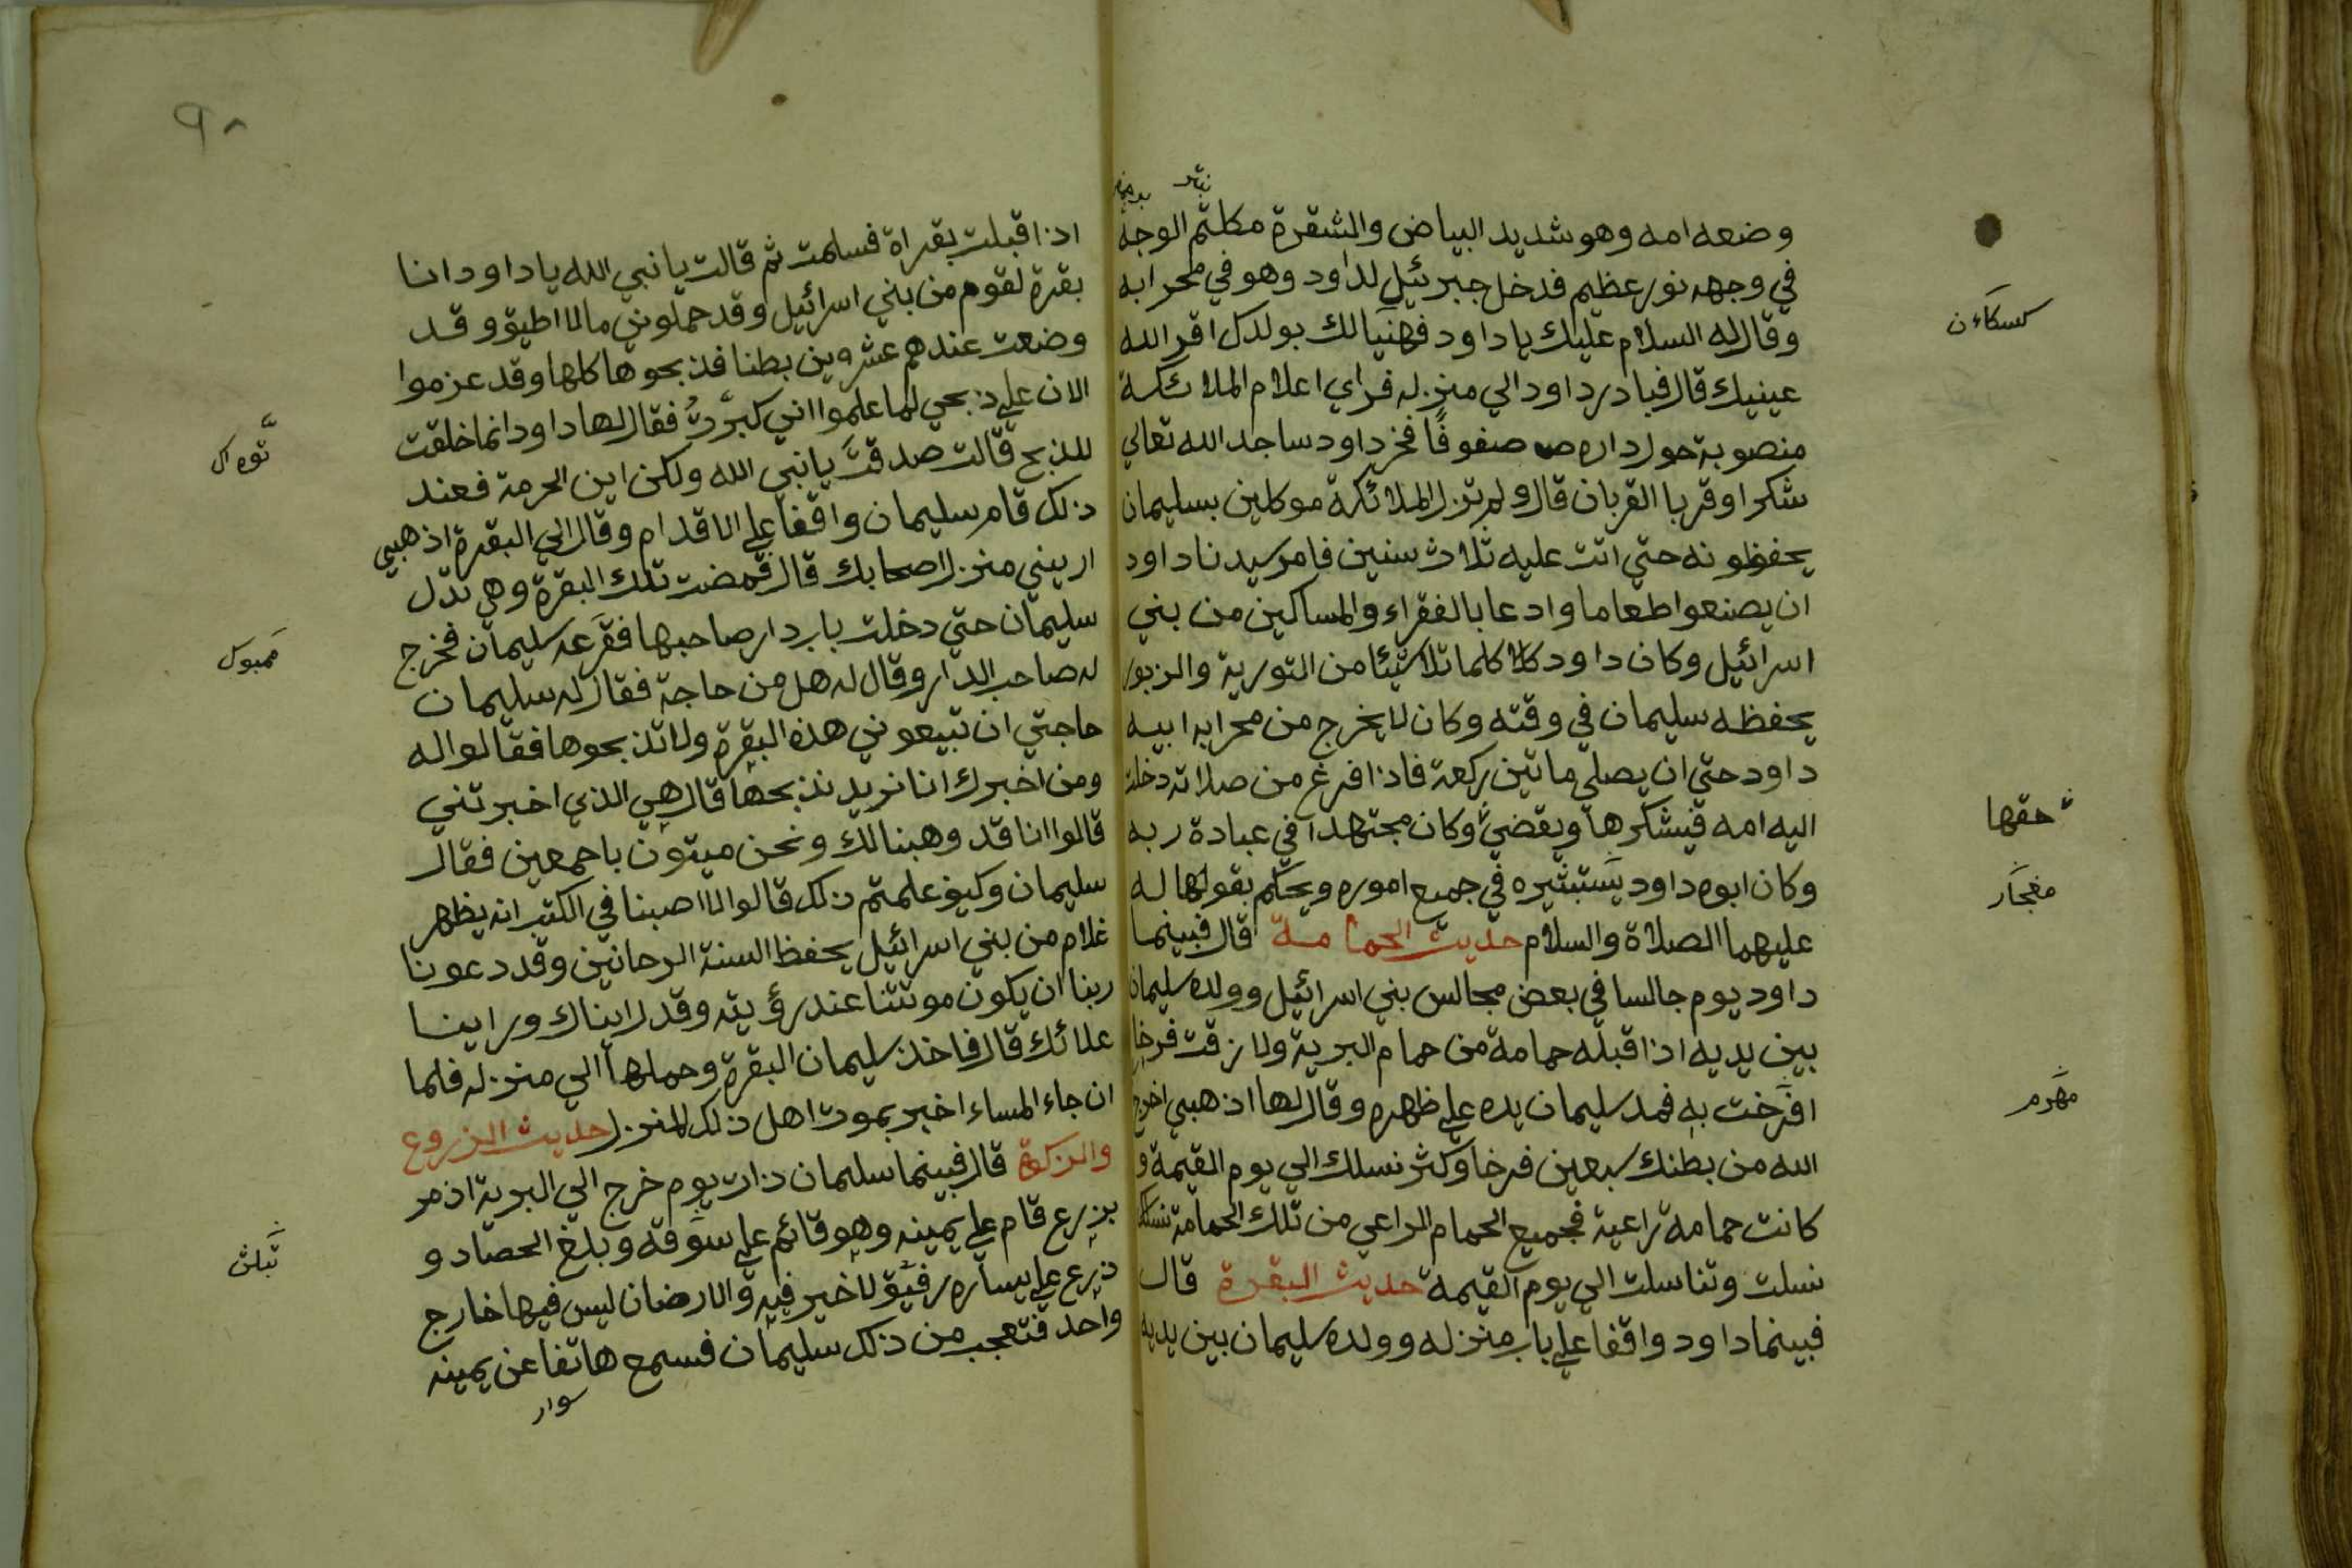 وضعه امه وهو شديد البياض والشقرة مكلثم الوجه
في وجهه نور عظيم فدخل جبرئيل لداود وهو في محرابه
وقال له السلام عليك يا داود فهنيالك بولدك اقر الله
عينيك قال فبادر داود الي منزله فراي اعلام الملائكة
منصوبة حول داره صفوفًا فخر داود ساجد الله تعالي
شكرا وقربا القربان قال ولم تزل الملائكة موكلين بسليمان
يحفظونه حتي اتت عليه ثلاث سنين فامر سيدنا داود
ان يصنعوا طعاما وادعا بالفقراء والمساكين من بني
اسرائيل وكان داود كلما تلا شيئا من التورية والزبور
يحفظه سليمان في وقته وكان لا يخرج من محرابه ابيه
داود حتي ان يصلي ماتين ركعة فاذا افرغ من صلاته دخلت
اليه امه فيشكرها ويقضي وكان مجتهدا في عبادة ربه
وكان ابوه داود يستبشيره في جميع اموره ويحكم بقولها له
عليهما الصلاة والسلام حديث الحمامة قال فبينما
داود يوم جالسا في بعض مجالس بني اسرائيل وولده سليمان
بين يديه اذا قبله حمامة من حمام البرية ولا زقت فرخا
افرخت به فمد سليمان يده علي ظهره وقال لها اذهبي اخرج
الله من بطنك سبعين فرخا وكثر نسلك الي يوم القيمة و
كانت حمامة راعية فجميع الحمام الراعي من تلك الحمامة
نسلت وتناسلت الي يوم القيمة حديث البقرة قال
فبينما داود واقفا علي باب منزله وولده سليمان بين يديه
كسكاءن
حقها
مغجار
مهرم
٩٨
اذا قبلت بقراة فسلمت ثم قالت يا نبي الله يا داود انا
بقرة لقوم من بني اسرائيل وقد حملوني مالا اطيق وقد
وضعت عندهم عشروين بطنا فذبحوها كلها وقد عزموا
الان علي ذبحي لما علموا اني كبرت فقال لها داود انما خلقت
للذبح قالت صدقت يا نبي الله ولكن اين الحرمة فعند
ذلك قام سليمان واقفا علي الاقدام وقال الي البقرة اذهبي
اريني منزل اصحابك قال فمضت تلك البقرة وهي تدل
سليمان حتي دخلت باب دار صاحبها فقرعه سليمان فخرج
له صاحب الدار وقال له هل من حاجة فقال له سليمان
حاجتي ان تبيعوني هذه البقرة ولا تذبحوها فقالوا له
ومن اخبرك انا نريد نذبحها قال هي الذي اخبرتني
قالوا انا قد وهبنا لك ونحن ميتون باجمعين فقال
سليمان وكيف علمتم ذلك قالوا لا اصبنا في الكتب انه يظهر
غلام من بني اسرائيل يحفظ السنة الرحانين وقد دعونا
ربنا ان يكون موتتنا عند رؤيته وقد رايناك وراينا
علائك قال فاخذ سليمان البقرة وحملها الي منزله فلما
ان جاء المساء اخبر بموت اهل ذلك المنزل حديث الزروع
والزكوة قال فبينما سليمان ذات يوم خرج الي البرية اذ مر
بزرع قام علي يمينه وهو قائم علي سوقه وبلغ الحصاد و
ذرع علي يساره رفيق لا خير فيه والارضان ليس فيها خارج
واحد فتعجب من ذلك سليمان فسمع هاتفا عن يمينه
سوار
توه ال
قمبوك
تبلق